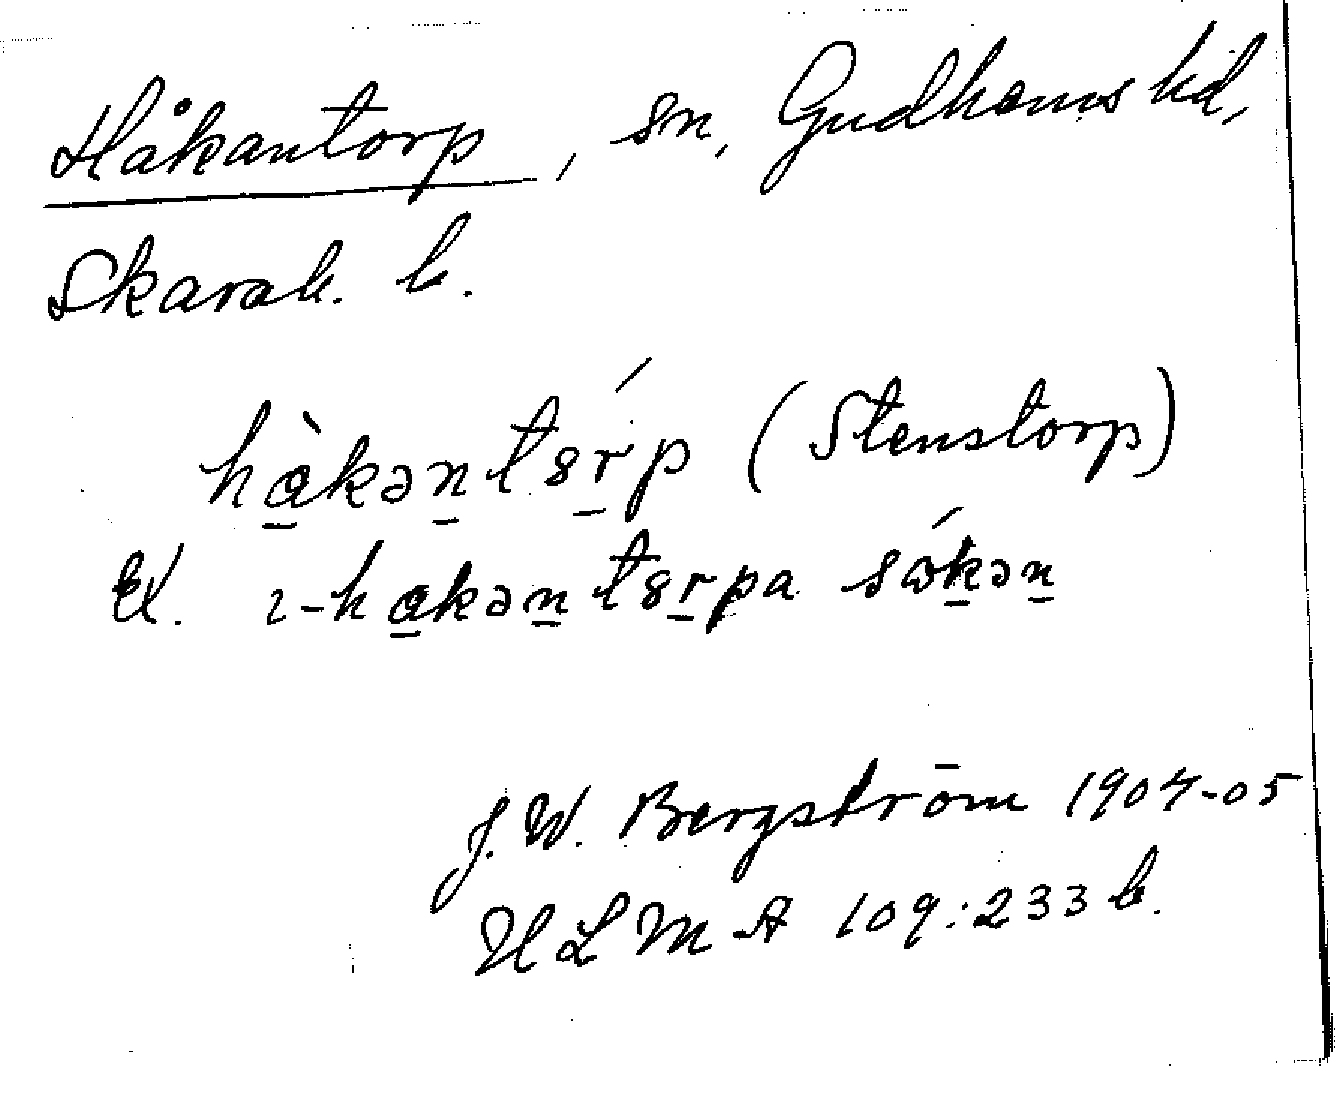 Håkantorp, sn, Gudhems hd,
Skarab. l.
hàkəntsŕp (Stenstorp)
Ex. ı-hakəntsrpa sókən
J. W. Bergström 1904-05
ULMA 109:233 b.